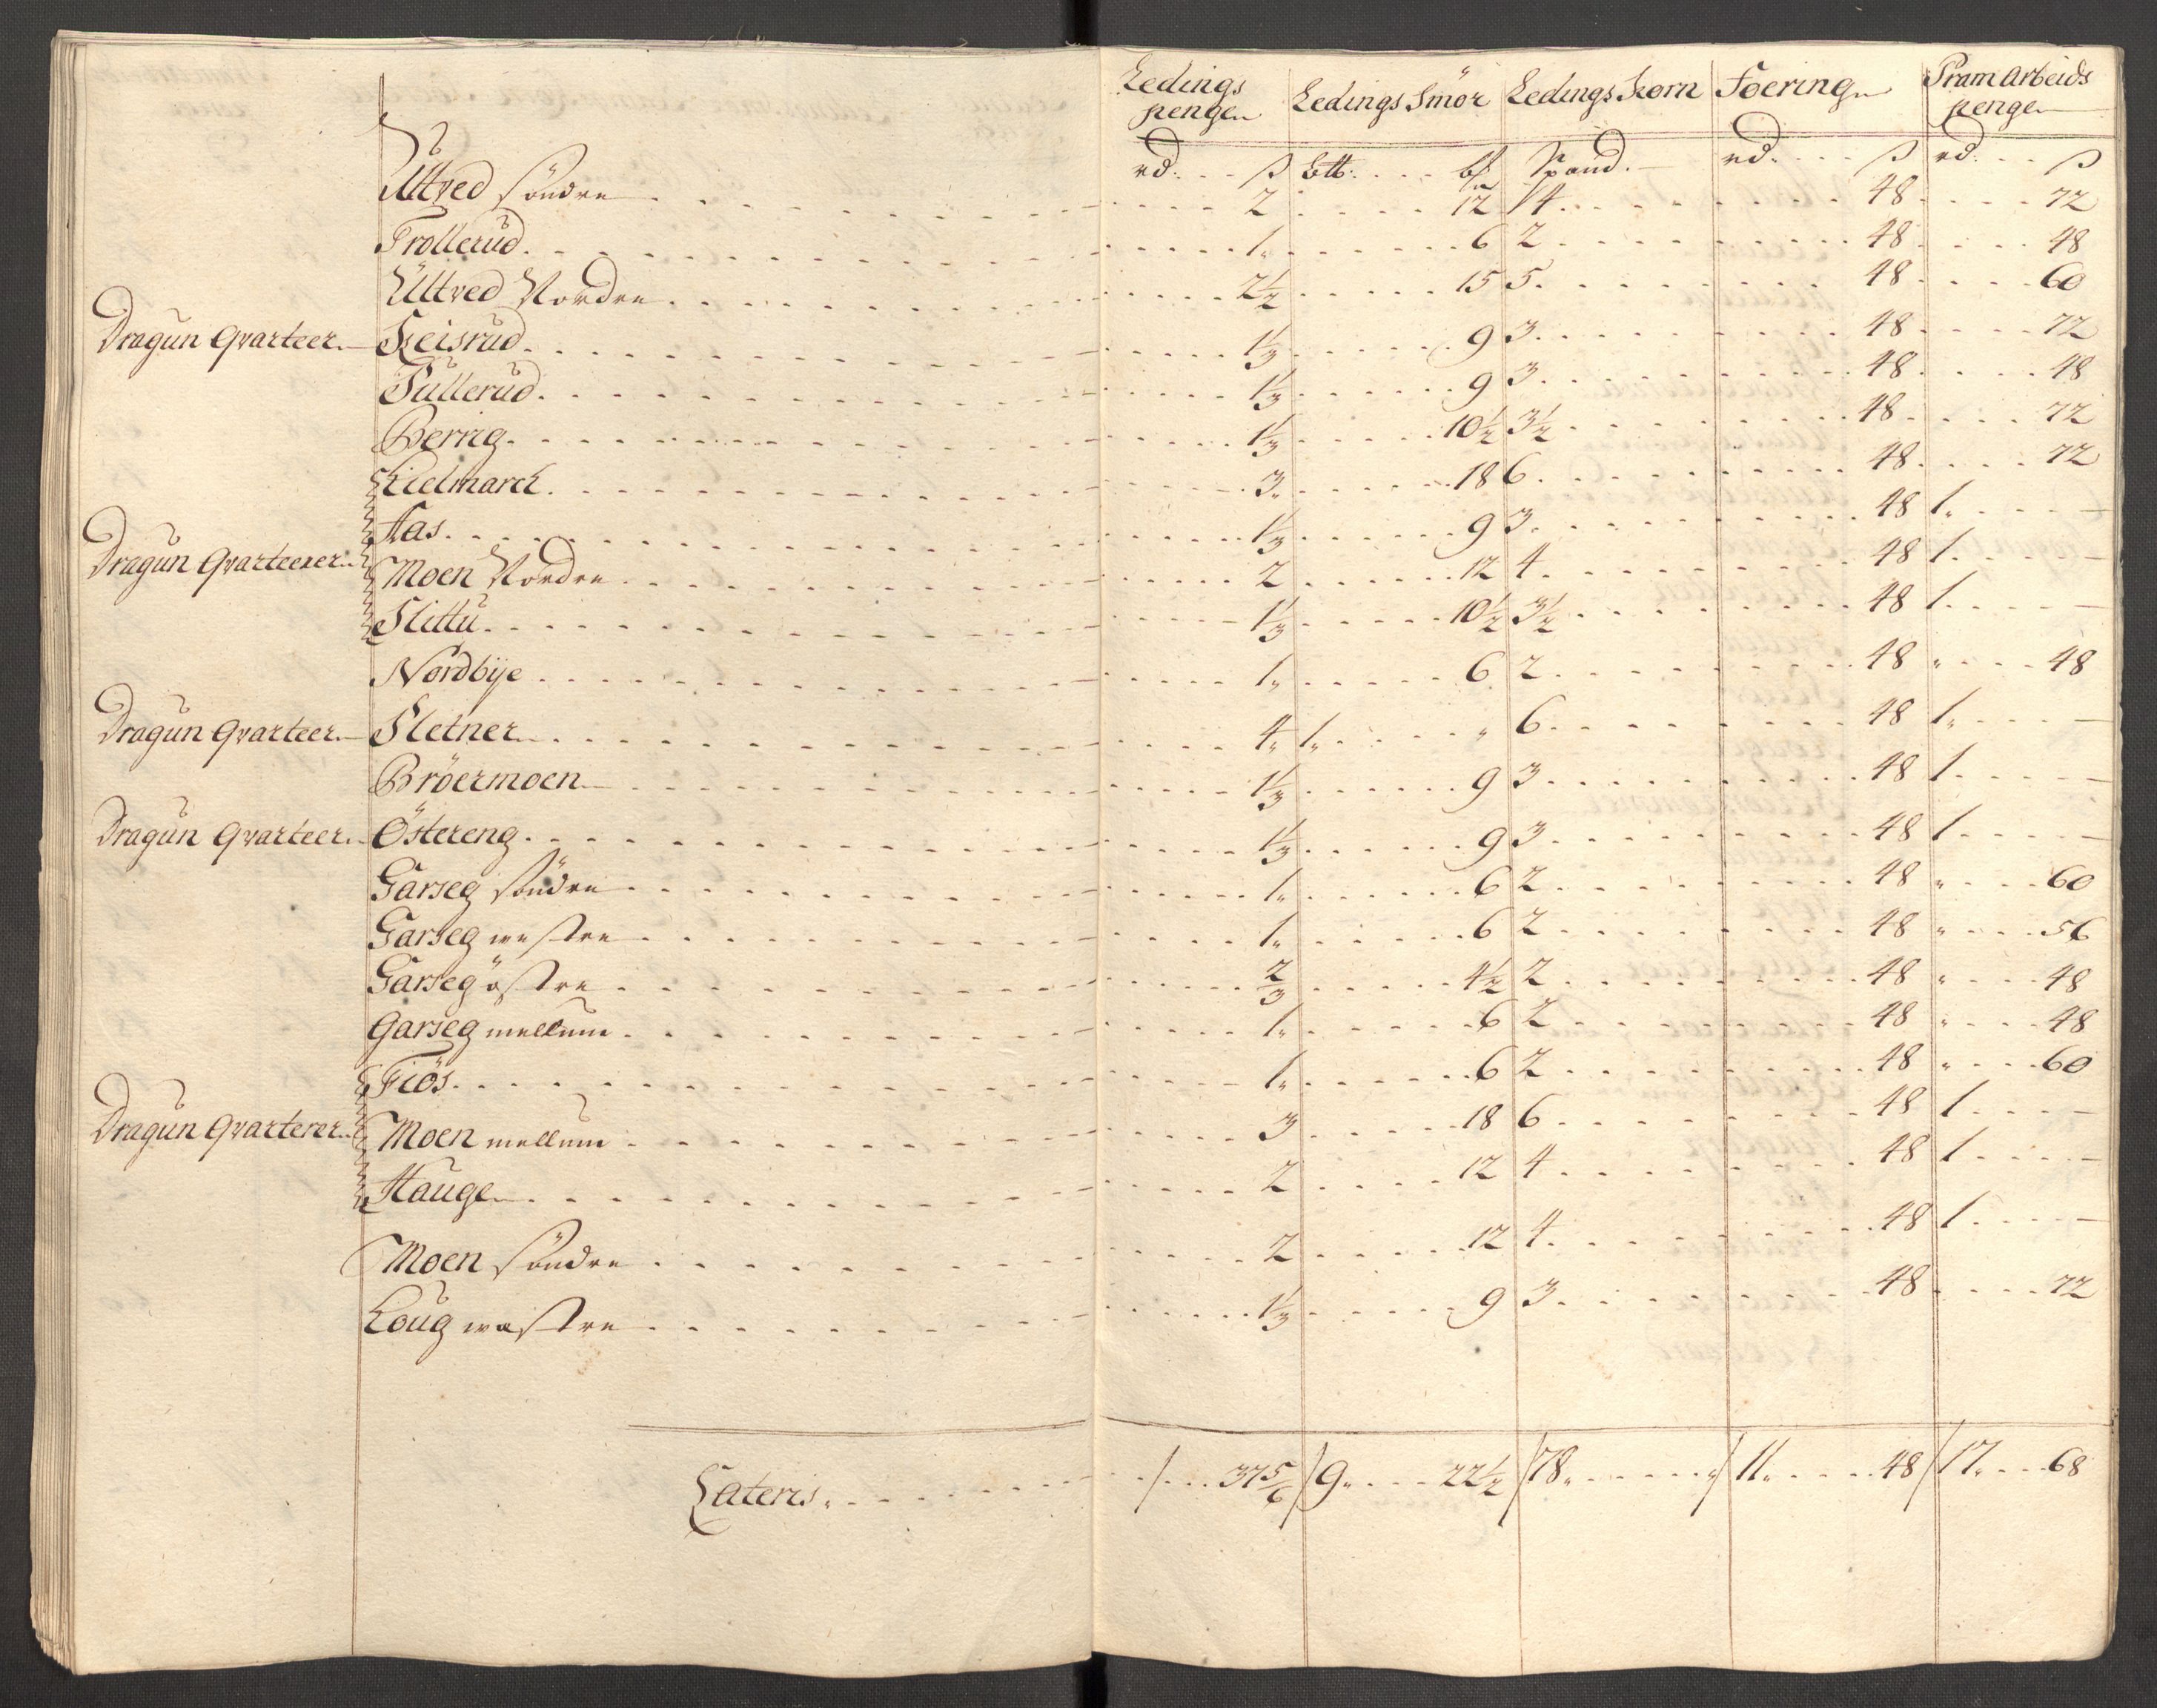 Ledings penge | Ledings Smör | Ledings Korn | Foering | Pram Arbeids penge
rd: ß | btt: bl | Spand. | rd. ß | rd: ß
Ulltved söndre 2 | 12 | 4 | 48 | 72
Trollerud 1" | 6 | 2 | 48 | 48
Ulltved Nordre 2½ | 15 | 5 | 48 | 60
Dragun Qvarteer Keisrud 1⅓ | 9 | 3 | 48 | 72
Sullerud 1⅓ | 9 | 3 | 48 | 48
Berrig 1⅓ | 10½ | 3½ | 48 | 72
Kielmarck 3" | 18 | 6 | 48 | 72
Aas 1⅓ | 9 | 3 | 48 | 1"
Dragun Qvarteerer Moen Nordre 2 | 12 | 4 | 48 | 1
Slittu 1⅓ | 10½ | 3½ | 48 | 1
Nordbÿe 1" | 6 | 2 | 48 | " 48
Dragun Qvarteer Sletner 4" | 1" " | 6 | 48 | 1"
Bröermoen 1⅓ | 9 | 3 | 48 | 1
Dragun Qvarteer Östereng 1⅓ | 9 | 3 | 48 | 1
Garseg söndre 1" | 6 | 2 | 48 | " 60
Garseg westre 1" | 6 | 2 | 48 | " 56
Garseg östre ⅔ | 4½ | 2 | 48 | " 48
Garseg mellum 1" | 6 | 2 | 48 | " 48
Fiös 1" | 6 | 2 | 48 | " 60
Dragun Qvarterer Moen mellum 3 | 18 | 6 | 48 | 1
Hauge 2 | 12 | 4 | 48 | 1
Moen söndre 2 | 12 | 4 | 48 | 1
Loug wastre 1⅓ | 9 | 3 | 48 | 72
Lateris 37 5/6 | 9" 22½ | 78" " | 11" 48 | 17" 68